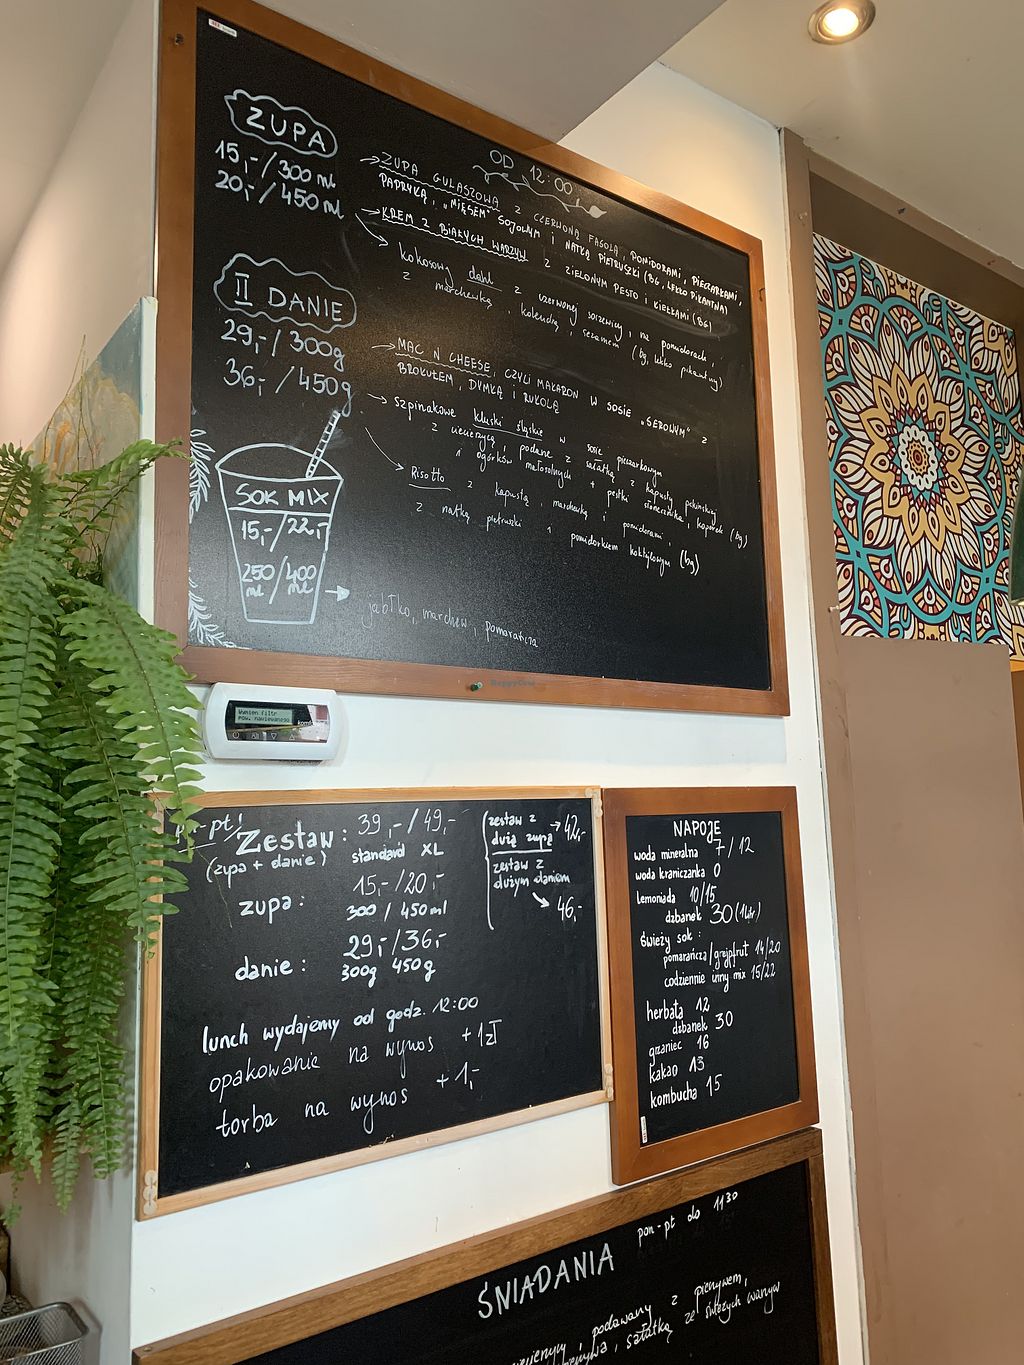 ZUPA
15,-/300 ml
20,-/450 ml
OD 12:00
ZUPA GULASZOWA Z CZERWONĄ FASOLĄ, POMIDORAMI, PIECZARKAMI,
PAPRYKĄ, „MIĘSEM" SOJOWYM I NATKĄ PIETRUSZKI (BG, LEKKO PIKANTNA)
KREM Z BIAŁYCH WARZYW Z ZIELONYM PESTO I KIEŁKAMI (BG)
kokosowy dahl z czerwonej soczewicy, na pomidorach,
z marchewką, kolendrą, sezamem (bg, lekko pikantny)
II DANIE
29,-/300g
36,-/450g
MAC N CHEESE, CZYLI MAKARON W SOSIE „SEROWYM" Z
BROKUŁEM, DYMKĄ I RUKOLĄ
szpinakowe kluski śląskie w sosie pieczarkowym
z ciecierzycą, podane z sałatką z kapusty pekińskiej
i ogórków małosolnych + pestki słonecznika, koperek (bg)
Risotto z kapustą, marchewką i pomidorami,
z natką pietruszki i pomidorkiem koktajlowym (bg)
SOK MIX
15,-/22,-
250 ml/400 ml
jabłko, marchew, pomarańcza
HappyCow
Wymien filtr
pow. nawiewanego
pn-pt!
Zestaw: 39,-/49,-
(zupa + danie) standard XL
zupa: 15,-/20,-
300 / 450 ml
danie: 29,-/36,-
300g 450g
zestaw z
dużą zupą → 42,-
zestaw z
dużym daniem
46,-
lunch wydajemy od godz. 12:00
opakowanie na wynos +1zł
torba na wynos +1,-
NAPOJE
woda mineralna 7/12
woda kraniczanka 0
Lemoniada 10/15
dzbanek 30 (1 litr)
świeży sok:
pomarańcza/grejpfrut 14/20
codziennie inny mix 15/22
herbata 12
dzbanek 30
grzaniec 16
kakao 13
kombucha 15
ŚNIADANIA pon-pt do 11 30
podawany z pieczywem,
sałatką ze świeżych warzyw